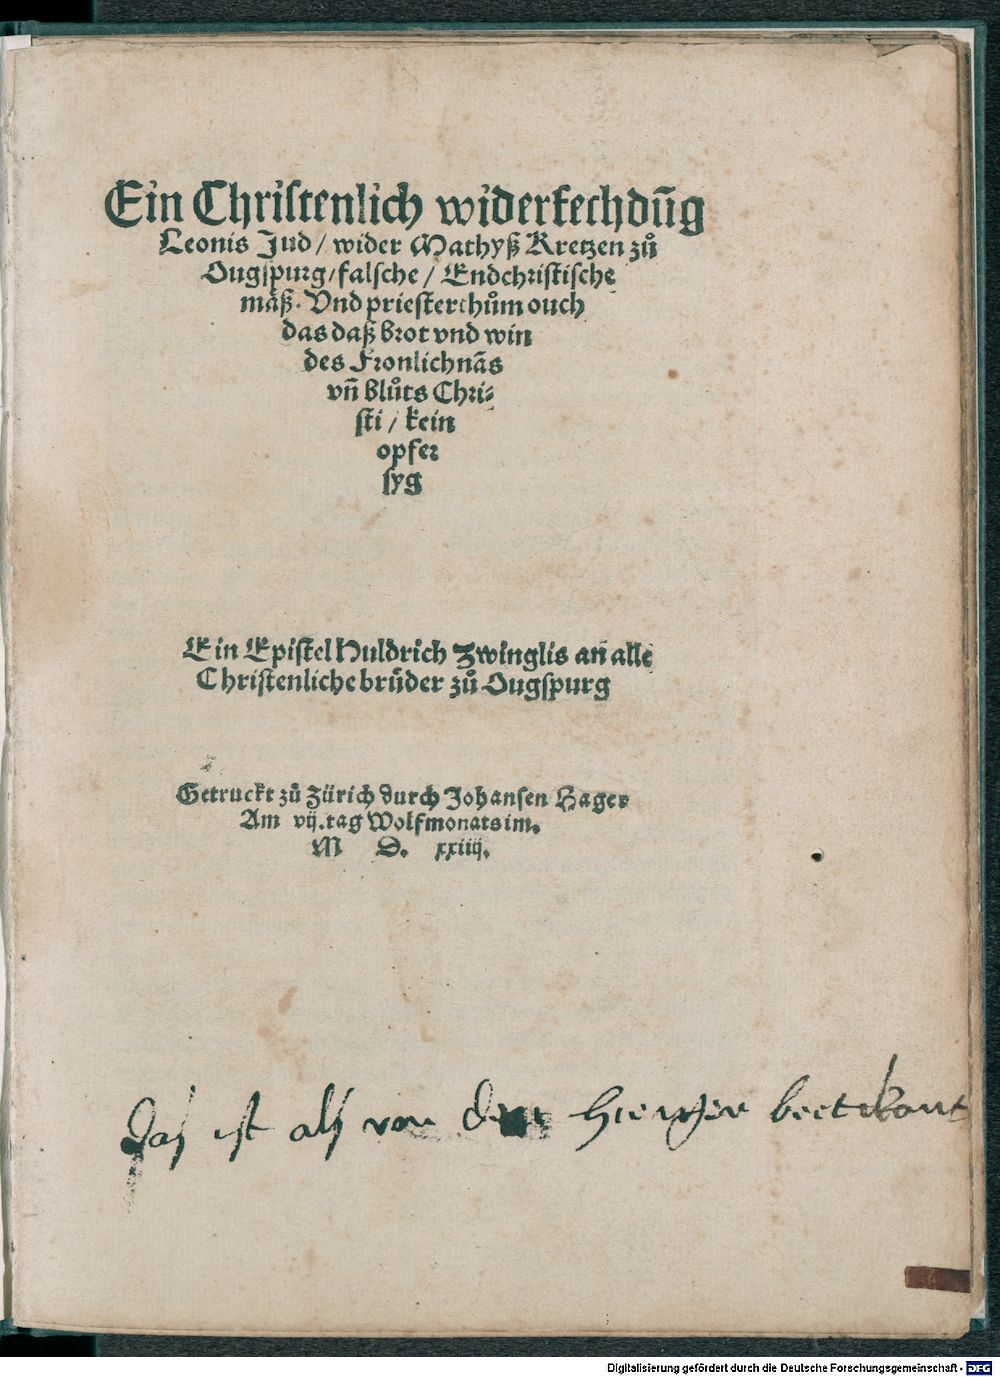 Ein Christenlich widerfechdūg
Leonis Jud / wider Mathyß Kretzen zů
Ougspurg / falsche / Endchristische
mäß. Vnd priesterthům ouch
das daß brot vnd win
des Fronlichnãs
vñ blůts Chri⸗
sti / kein
opfer
syg
Ein Epistel Huldrich Zwinglis an alle
Christenliche brüder zů Ougspurg
Getruckt zů Zürich durch Johansen Hager
Am vij. tag Wolfmonats im.
M D. xxiiij.
Das ist als von
Digitalisierung gefördert durch die Deutsche Forschungsgemeinschaft - DFG